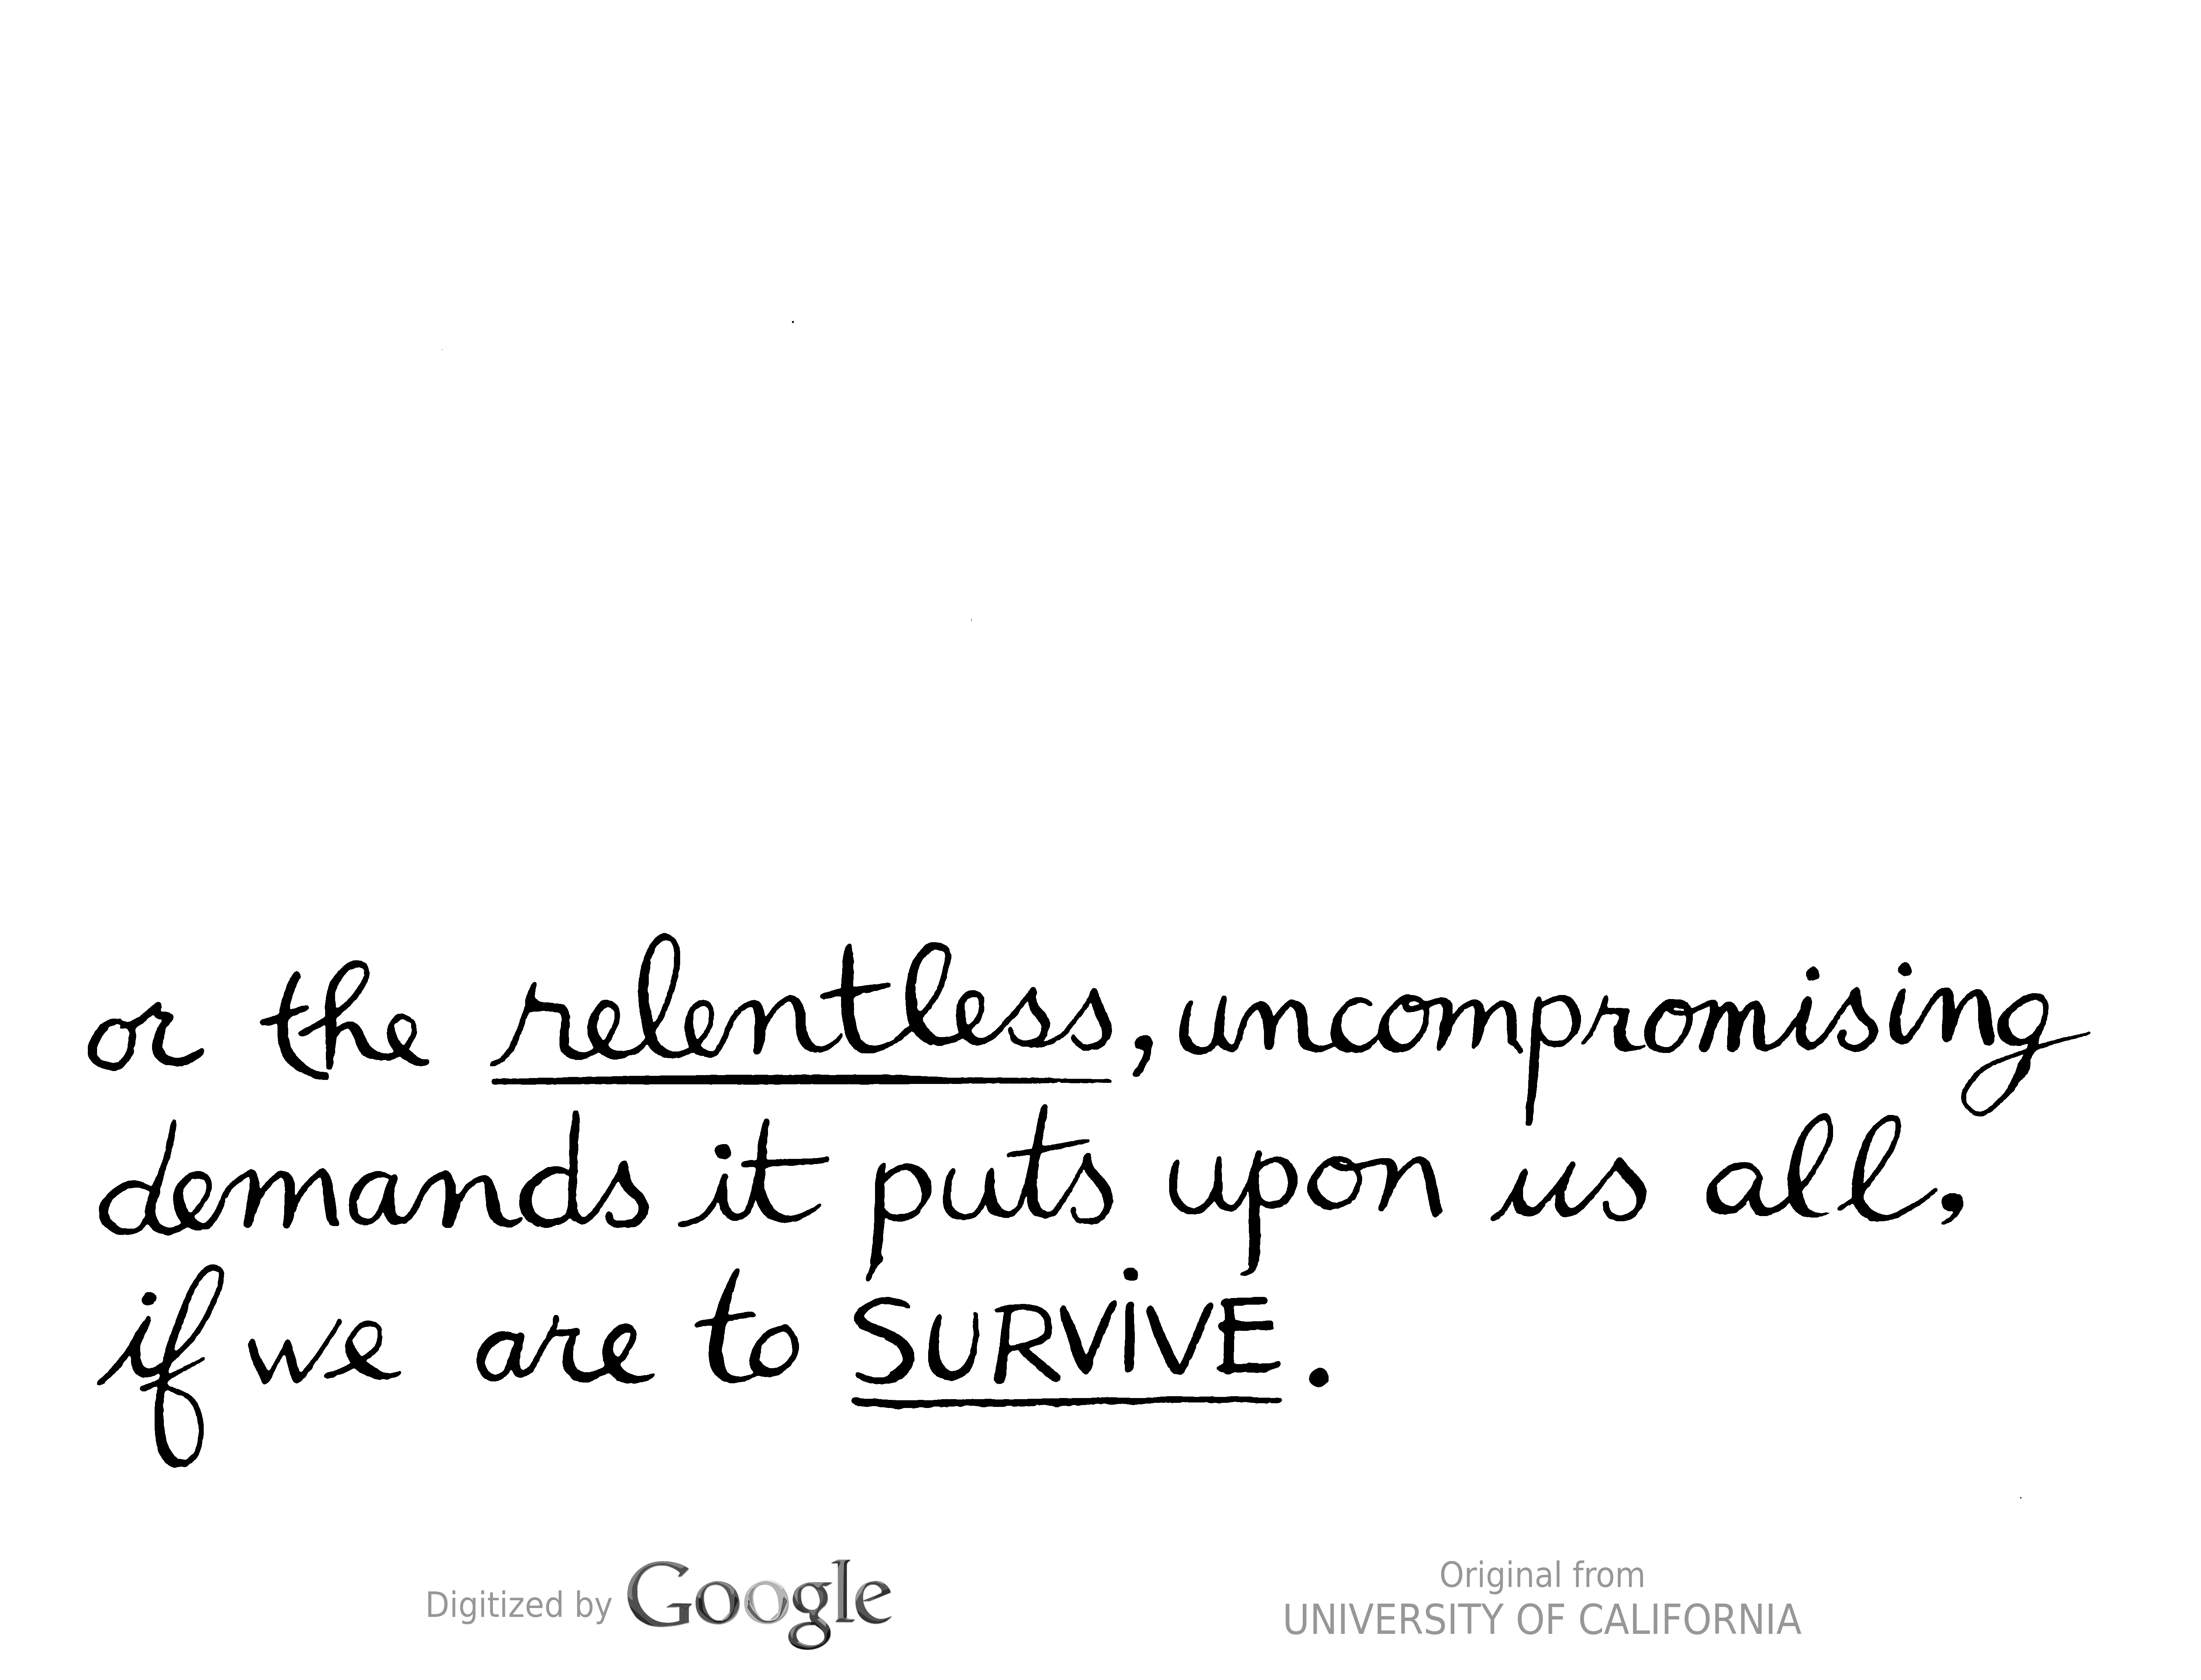 or the relentless, uncompromising
demands it puts upon us all,
if we are to SURViVE.
Digitized by Google
Original from
UNIVERSITY OF CALIFORNIA